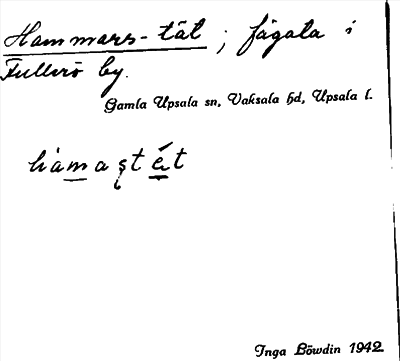 Hammars-tåt ; fägata i
Fullerö by.
Gamla Upsala sn, Vaksala hd, Upsala l.
hàmaștét
Inga Löwdin 1942